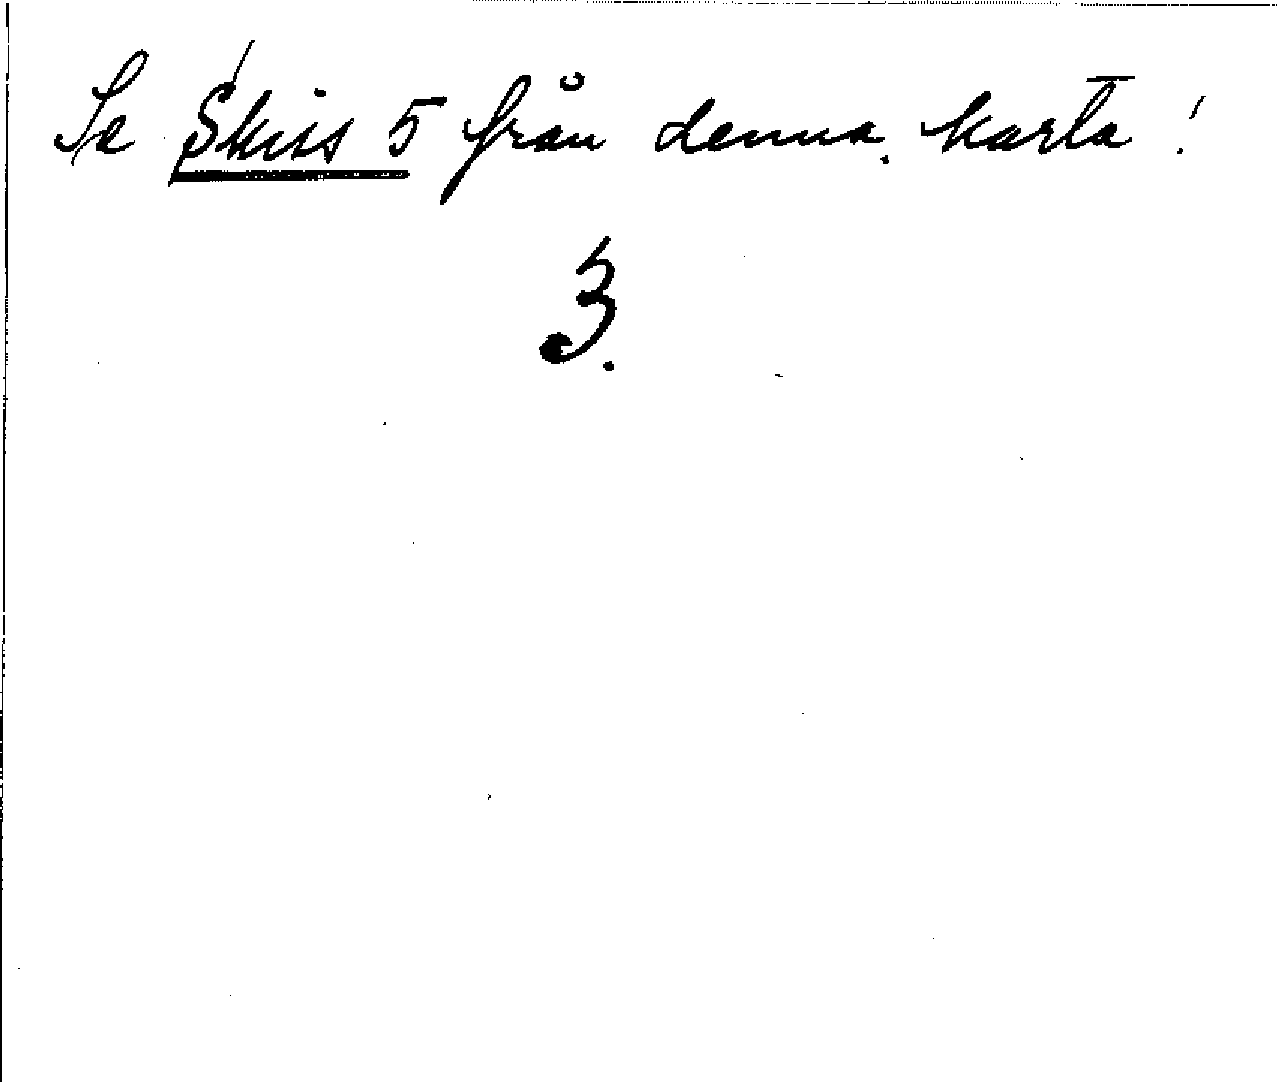 Se Skiss 5 från denna karta!
3.